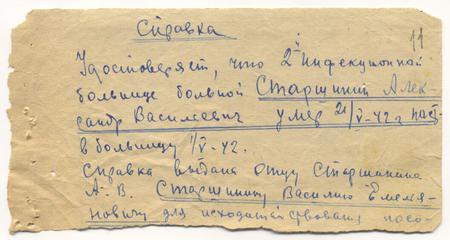 Справка
11
Удостоверяет, что 2й Инфекционной
больнице больной Старшинин Алек-
сандр Василевич умер 21/V-42 г пост.
в больницу 1/V-42.
Справка выдана отцу Старшинина
А. В. Старшинину Василию Емель-
яновичу для исходатействования посо-